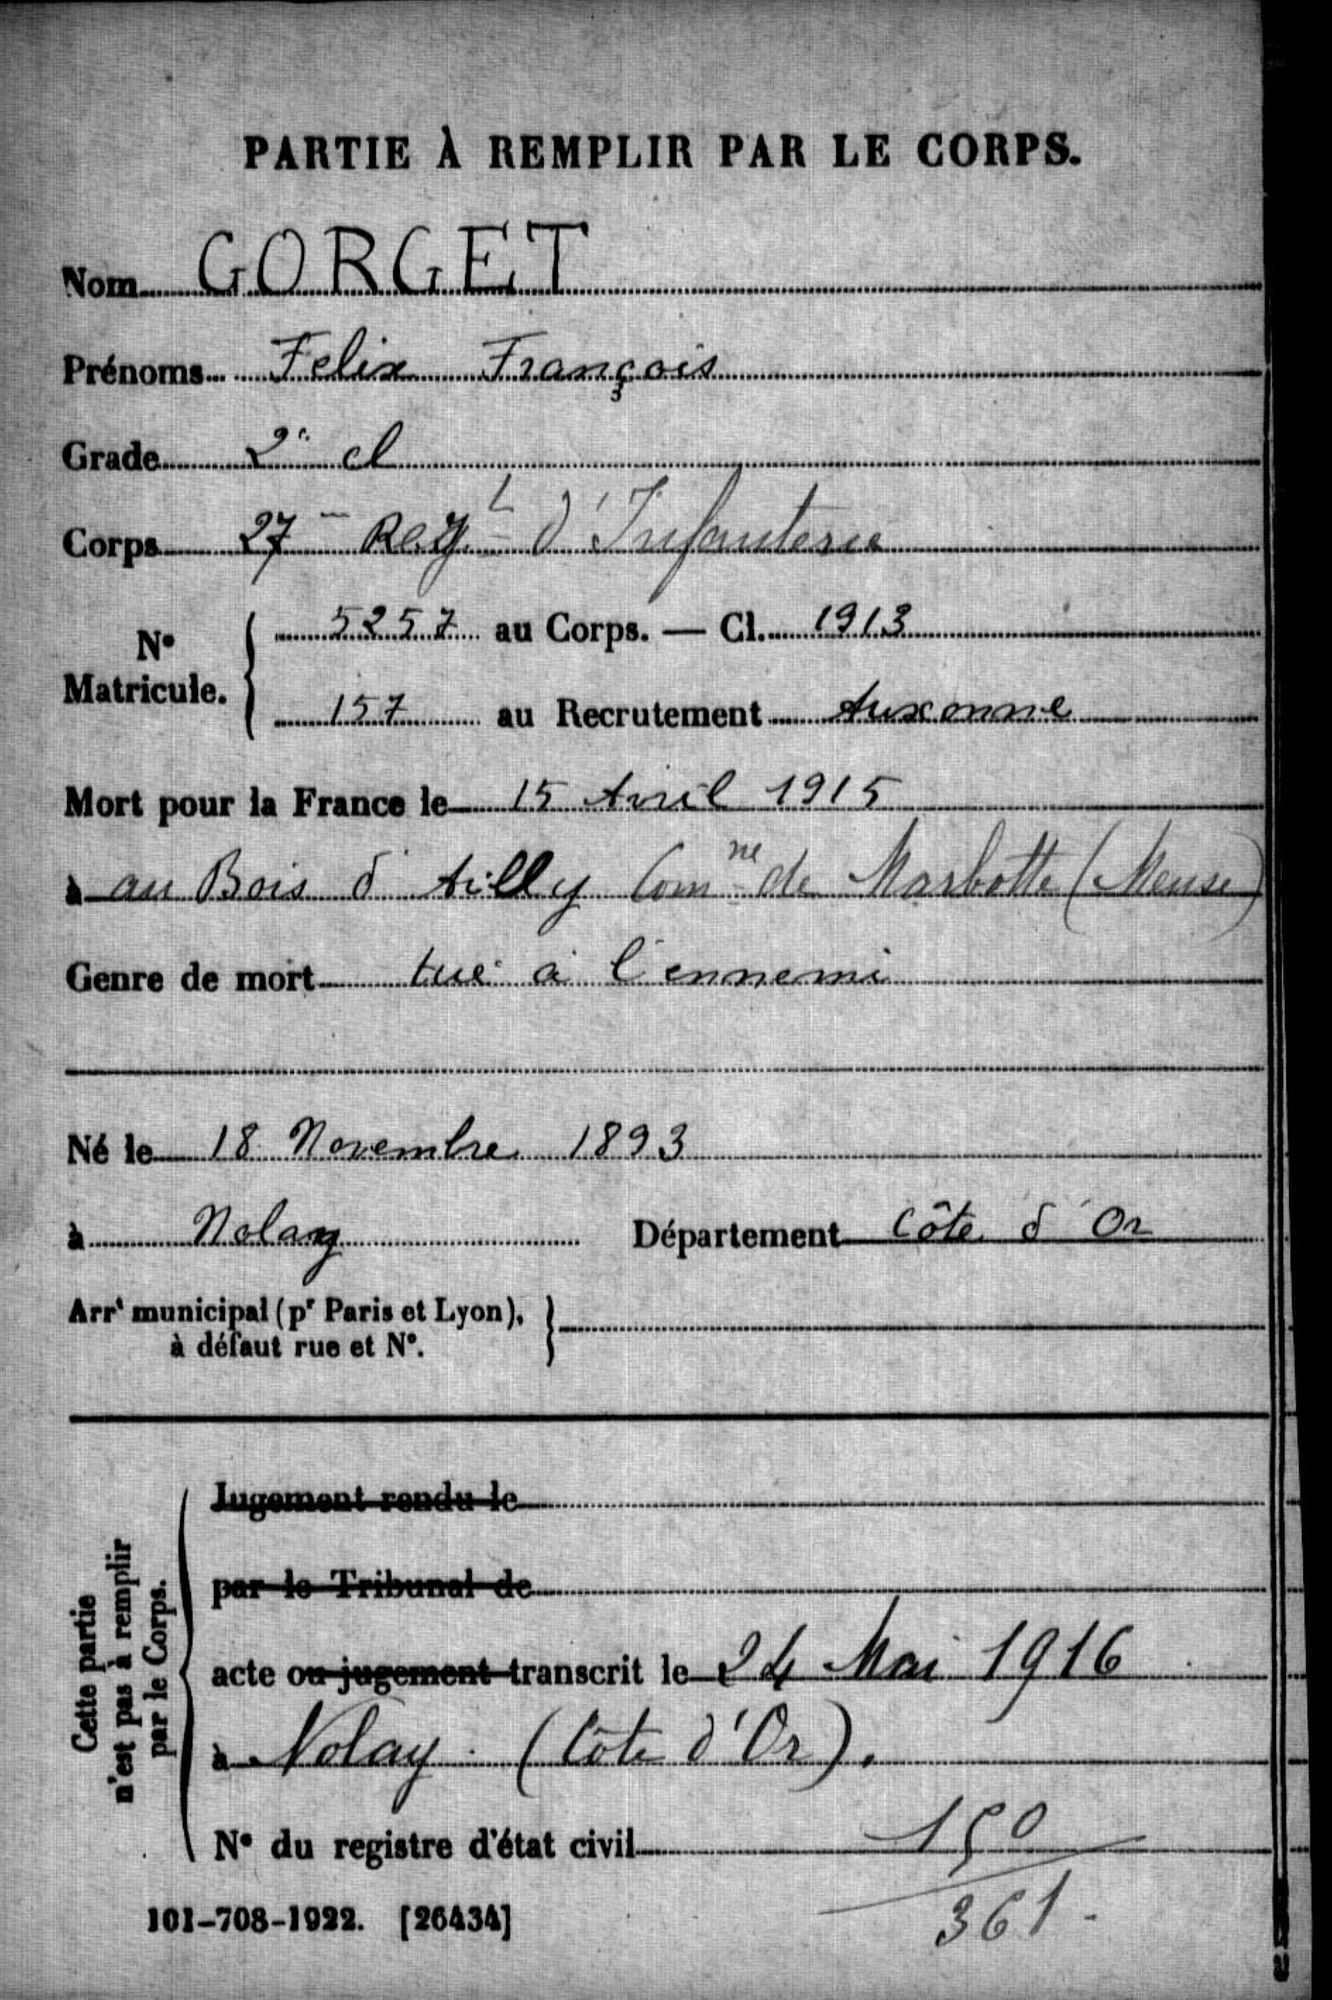 PARTIE À REMPLIR PAR LE CORPS.
Nom GORGET
Prénoms Felix François
Grade 2e cl
Corps 27me Regt d'Infanterie
N° Matricule. 5257 au Corps. — Cl. 1913
157 au Recrutement Auxonne
Mort pour la France le 15 Avril 1915
à au Bois d'Ailly Comne de Marbotte (Meuse)
Genre de mort tué à l'ennemi
Né le 18 Novembre 1893
à Nolay Département Côte d'Or
Arrt municipal (pr Paris et Lyon),
à défaut rue et N°.
Cette partie
n'est pas à remplir
par le Corps.
Jugement rendu le
par le Tribunal de
acte ou jugement transcrit le 24 Mai 1916
à Nolay (Côte d'Or).
N° du registre d'état civil 150
361
101-708-1922. [26434]